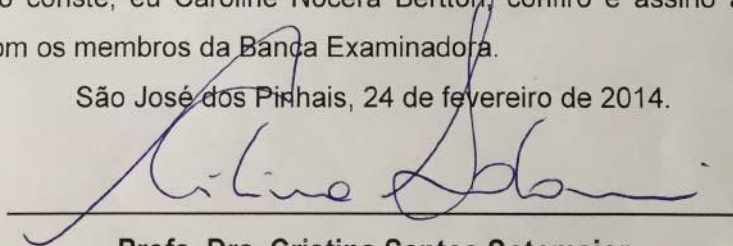 conste, eu Caroline Nocera Bertton, confiro e assino
om os membros da Banca Examinadora.
São José dos Pinhais, 24 de fevereiro de 2014.
Profa. Dra. Cristina Santos Sotomaior